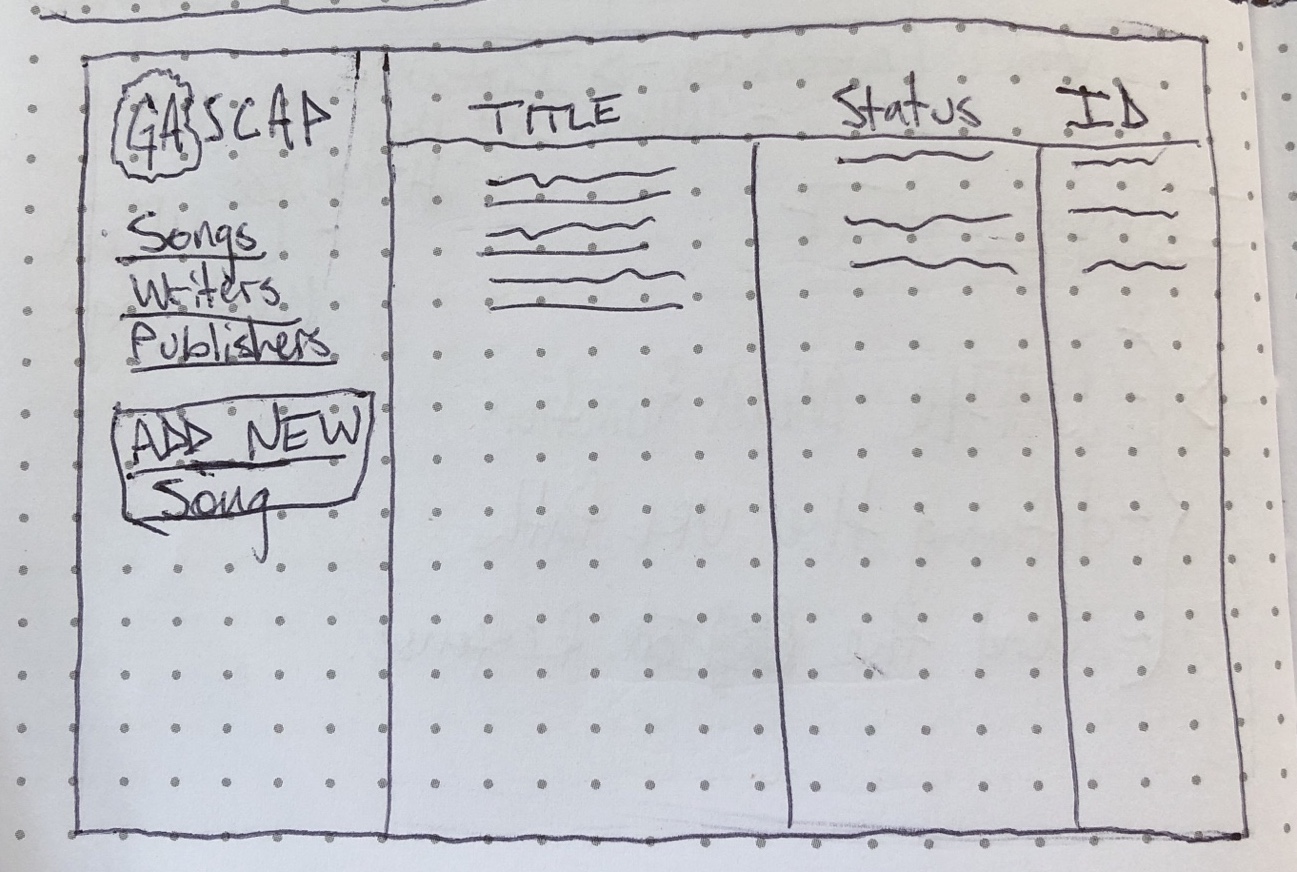 GASCAP
Songs
Writers
Publishers
ADD NEW
Song
TITLE Status ID